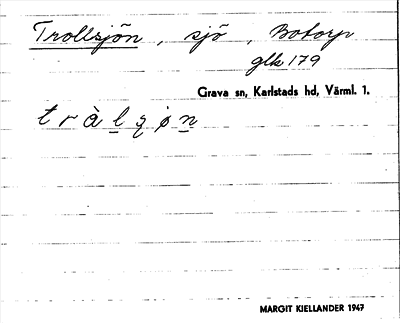 Trollsjön, sjö, Botorp
glk 179
Grava sn, Karlstads hd, Värml. 1.
tràlʂøn
MARGIT KIELLANDER 1947